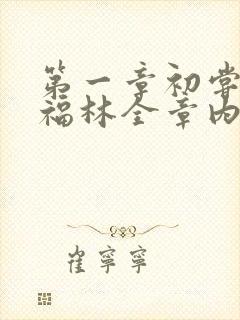 第一章初尝
福林全章内
崔宁宁